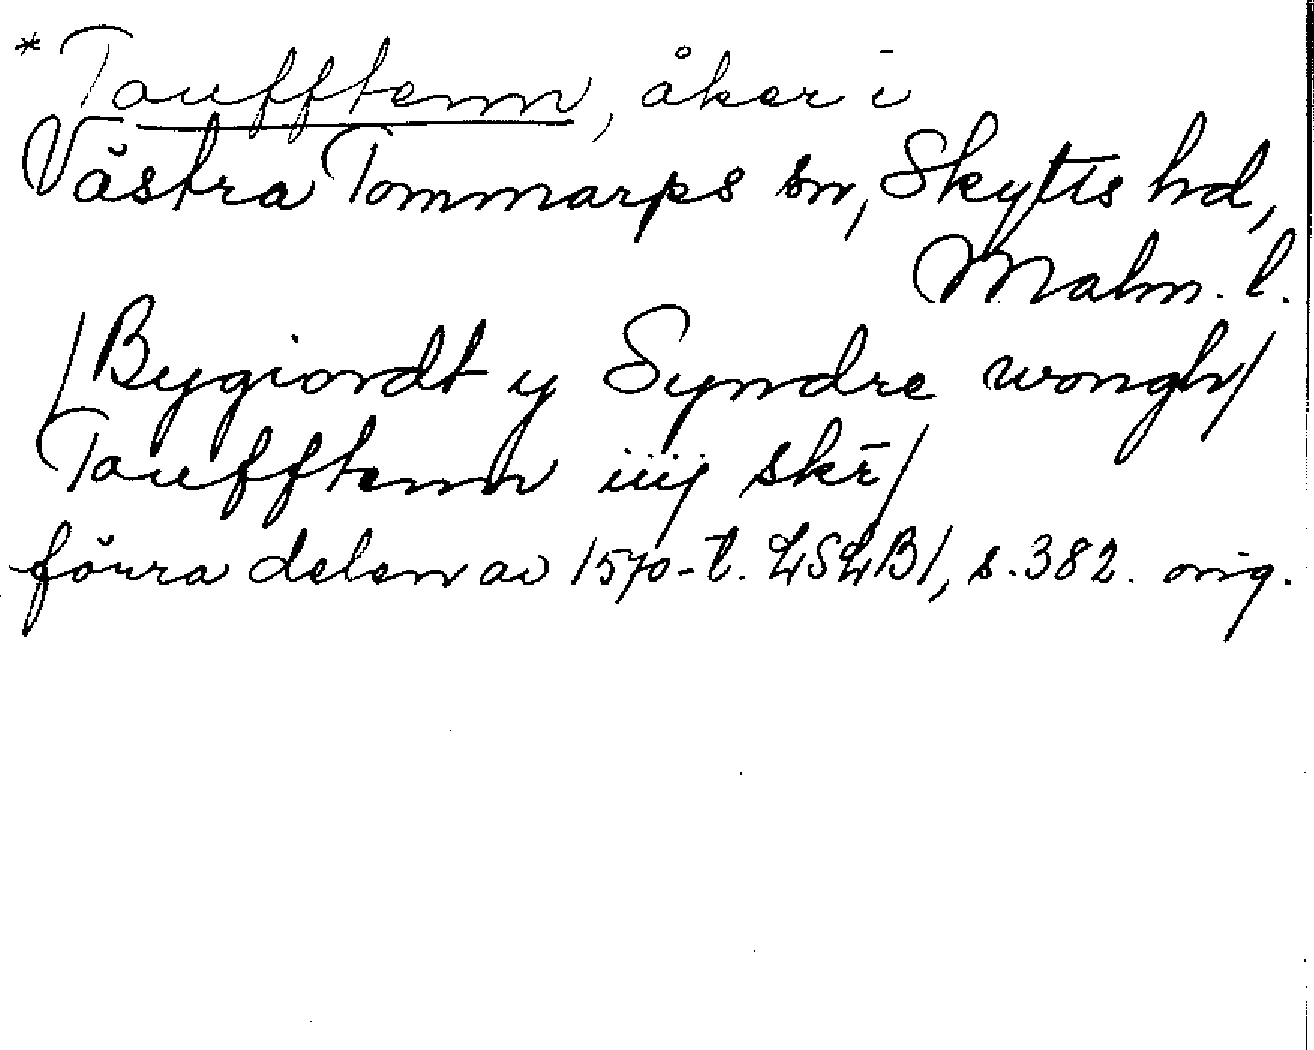 * Toufftenn, åker i
Västra Tommarps sn, Skytts hd,
Malm. l.
/Bygiordt y Syndre wongh/
Toufftenn iiij skr̄/
förra delen av 1570-t. LSLB/, s. 382. orig.